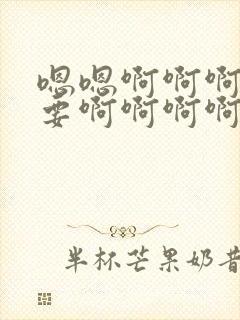 嗯嗯啊啊啊
要啊啊啊啊
半杯芒果奶昔